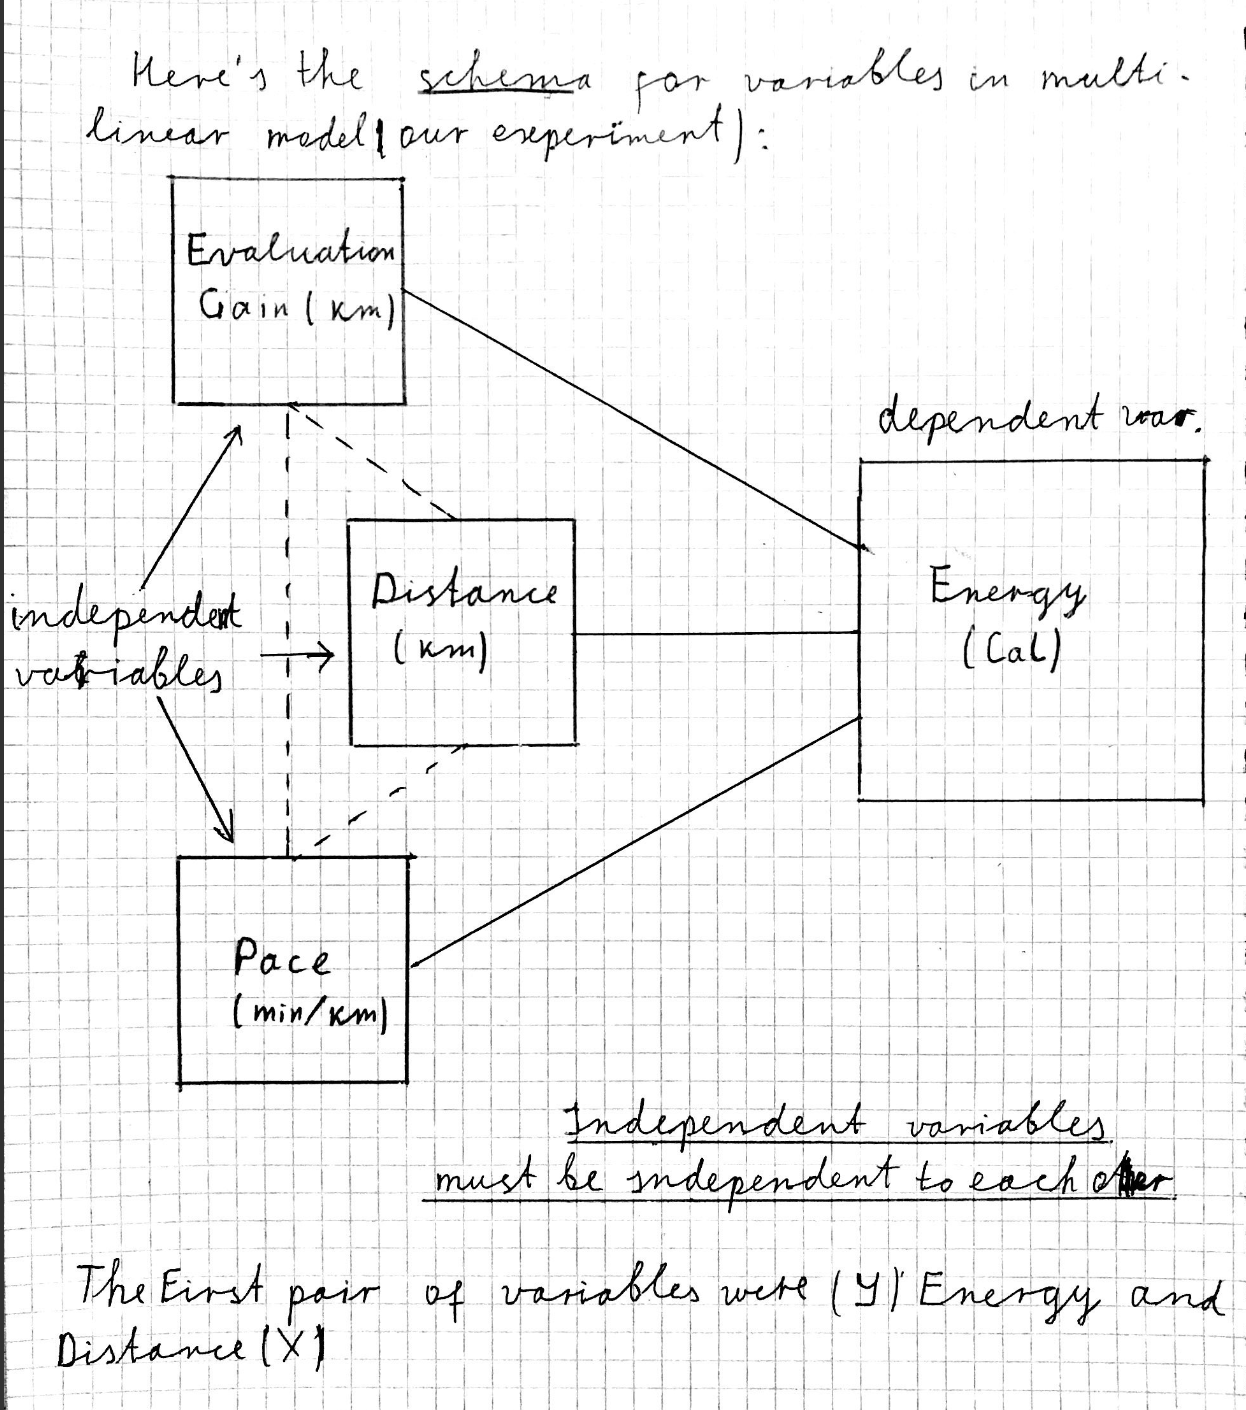 Here's the schema for variables in multi-
linear model (our experiment):
Evaluation
Gain (km)
dependent var.
Distance
(km)
Energy
(Cal)
independent
variables
Pace
(min/km)
Independent variables
must be independent to each other
The First pair of variables were (Y) Energy and
Distance (X)